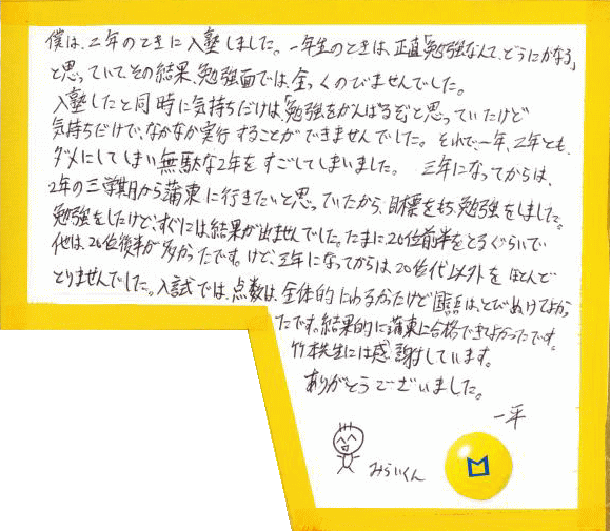 僕は、2年のときに入塾しました。一年生のときは、正直「勉強なんて、どうにかなる」
と思っていて、その結果、勉強面では、全っくのびませんでした。
入塾したと同時に気持ちだけは、「勉強をがんばるぞ」と思っていたけど
気持ちだけで、なかなか実行することができませんでした。それで、一年、2年とも、
ダメにしてしまい無駄な2年をすごしてしまいました。 三年になってからは、
2年の三学期から蒲東に行きたいと思っていたから、目標をもち勉強をしました。
勉強をしたけど、すぐには結果が出ませんでした。たまに20位前半をとるぐらいで
他は、20位後半が多かったです。けど、三年になってからは20位代以外をほとんど
とりませんでした。入試では、点数は、全体的にわるかったけど国語は、とびぬけてよかっ
たです。結果的に蒲東に合格できてよかったです。
竹本先生には感謝しています。
ありがとうございました。
一平
みらいくん